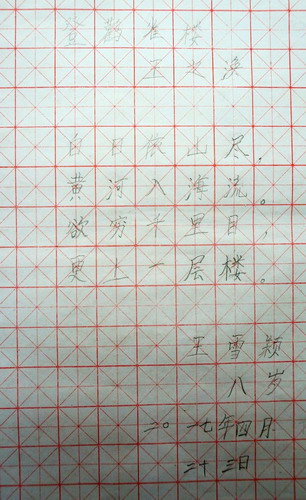 登鹳雀楼
王之涣
白日依山尽，
黄河入海流。
欲穷千里目，
更上一层楼。
王雪颖
八岁
二〇一七年四月
二十三日